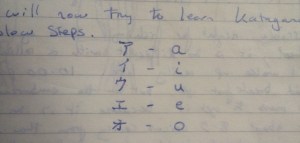 will now try to learn Katagan
slow steps.
ア - a
イ - i
ウ - u
エ - e
オ - o